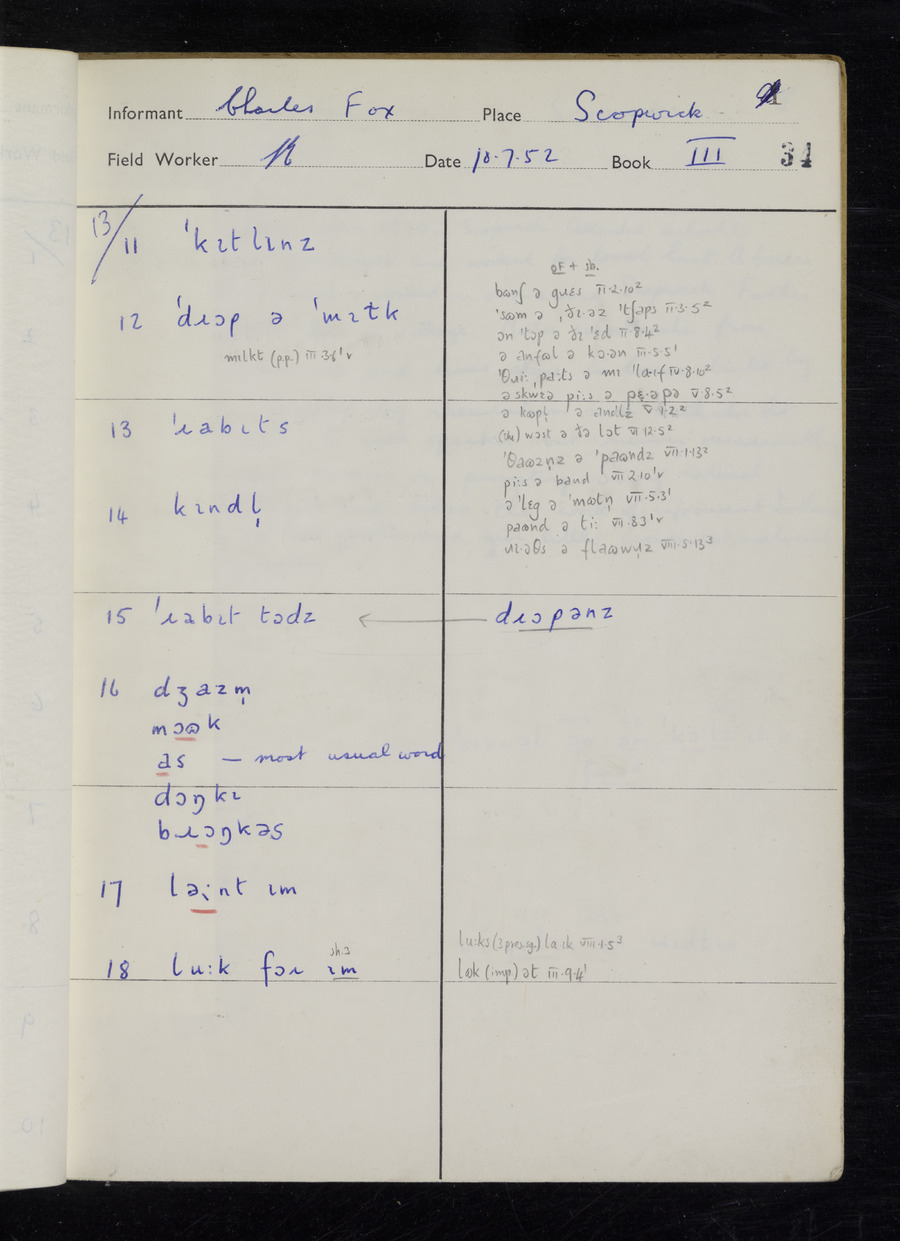 Informant Charles Fox Place Scopwick
Field Worker Date 10.7.52 Book III 34
13/
11 ˈkɪtlɪnz
12 ˈdɹɔp ə ˈmɪɫk
mɪlkt (p.p.) III 3.6¹v
13 ˈɹabɪts
14 kɪndl̩
15 ˈɹabɪt tɔdz
16 dʒazm̩
mɔɷk
as — most usual word
dɔŋkɪ
bɹɔŋkəs
17 ləːnt ɪm
18 luːk fɔɹ ɪm
sh.3
of + sb.
bɷnʃ ə II.2.10²
ˈsɷm ə ˌðɪ.əz ˈtʃaps II.3.5²
ɔn ˈtɔp ə ðɪ ˈɛd II.8.4²
ə anfɷl ə kɔ.ən III.5.5¹
ˈθɹiː ˌpaːts ə mɪ ˈlaɪf IV.8.10²
ə skwɛə piːs ə pɛ.əpə V.8.5²
ə kɷpl̩ ə andlz V.1.2²
(the) wɔst ə ðə lɔt VI 12.5²
ˈθaɷzn̩z ə ˈpaɷndz VII.1.13²
piːs ə band VII 2.10¹v
ə ˈlɛg ə ˈmɷtn̩ VII.5.3¹
paɷnd ə tiː VII.8.3¹v
ə VIII.5.13³
dɹɔpənz
luːks (3 pres.sg.) laɪk VIII.1.5³
lɷk (imp) ət III.9.4¹